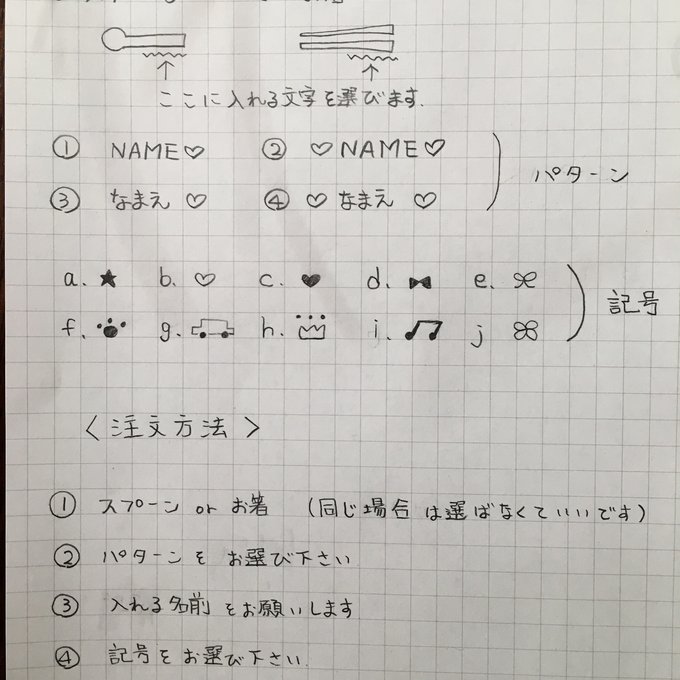 ここに入れる文字を選びます.
① NAME♡ ② ♡NAME♡
③ なまえ♡ ④ ♡なまえ♡
パターン
a. ★ b. ♡ c. ♥ d. e.
f. g. h. i. ♫ j
記号
〈注文方法〉
① スプーン or お箸 (同じ場合は選ばなくていいです)
② パターンをお選び下さい
③ 入れる名前をお願いします
④ 記号をお選び下さい.